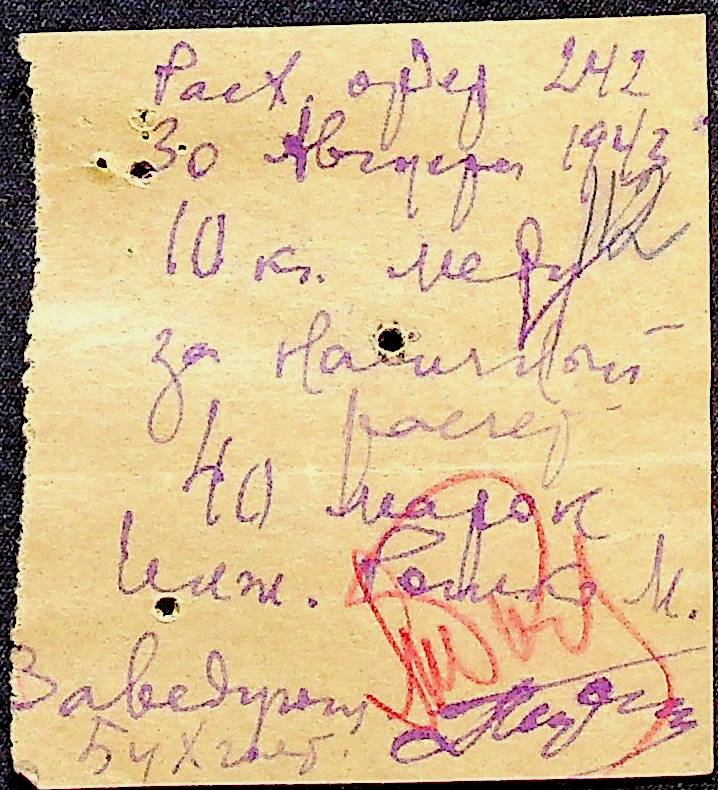 Расх. ордер 242
30 Августа 1942
10 кг. меду
за наличный
расчет
40 марок
Инж. М.
Заведующ
Бухгалт.